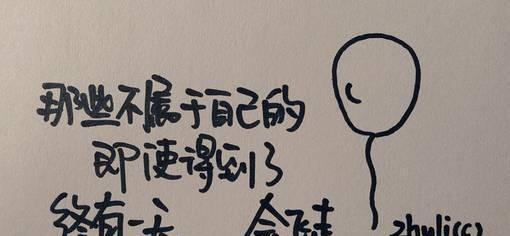 那些不属于自己的
即使得到了
终有一天 会飞走